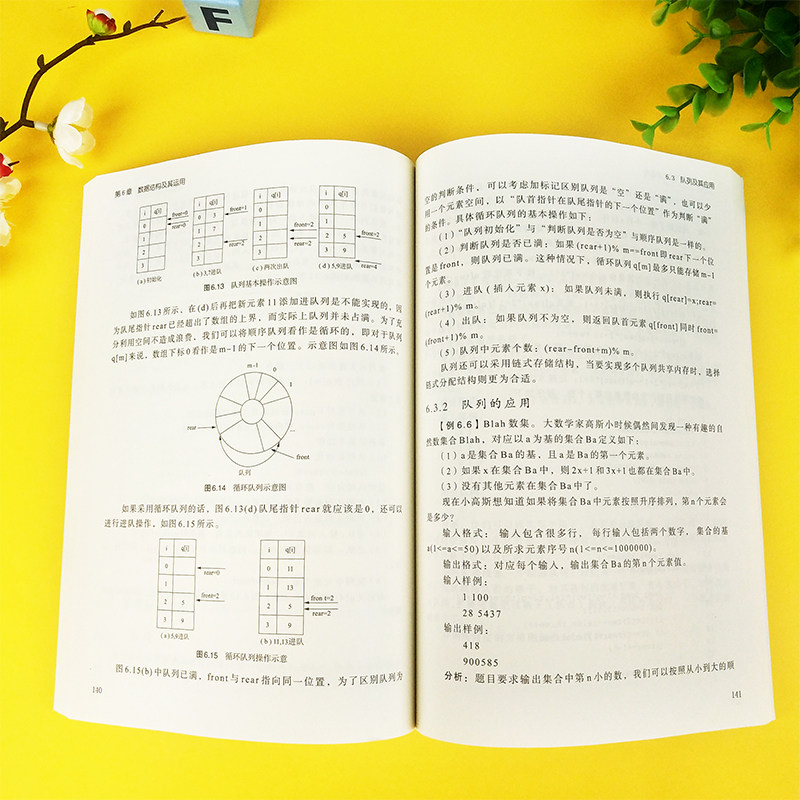 F
第6章 数据结构及其运用
i q[i]
0
1
2
3
front=0
rear=0
(a)初始化
i q[i]
0 3
1 7
2
3
front=1
rear=2
(b)3,7进队
i q[i]
0
1
2
3
front=2
rear=2
(c)两次出队
i q[i]
0
1
2 5
3 9
front=2
rear=4
(d)5,9进队
图6.13 队列基本操作示意图
如图6.13所示，在(d)后再把新元素11添加进队列是不能实现的，因
为队尾指针rear已经超出了数组的上界，而实际上队列并未占满。为了充
分利用空间不造成浪费，我们可以将顺序队列看作是循环的，即对于队列
q[m]来说，数组下标0看作是m-1的下一个位置。示意图如图6.14所示。
m-1 0
1
...
rear
front
队列
图6.14 循环队列示意图
如果采用循环队列的话，图6.13(d)队尾指针rear就应该是0，还可以
进行进队操作，如图6.15所示。
i q[i]
0
1
2 5
3 9
rear=0
front=2
(a)5,9进队
i q[i]
0 11
1 13
2 5
3 9
fron t=2
rear=2
(b)11,13进队
图6.15 循环队列操作示意
图6.15(b)中队列已满，front与rear指向同一位置，为了区别队列为
140
6.3 队列及其应用
空的判断条件，可以考虑加标记区别队列是“空”还是“满”，也可以少
用一个元素空间，以“队首指针在队尾指针的下一个位置”作为判断“满”
的条件。具体循环队列的基本操作如下：
(1)“队列初始化”与“判断队列是否为空”与顺序队列是一样的。
(2)判断队列是否已满：如果(rear+1)% m==front即rear下一个位
置是front，则队列已满。这种情况下，循环队列q[m]最多只能存储m-1
个元素。
(3) 进队(插人元素x)： 如果队列未满，则执行q[rear]=x;rear=
(rear+1)% m。
(4)出队：如果队列不为空，则返回队首元素q[front]同时front=
(front+1)% m。
(5)队列中元素个数：(rear-front+m)% m。
队列还可以采用链式存储结构，当要实现多个队列共享内存时，选择
链式分配结构则更为合适。
6.3.2 队列的应用
【例6.6】Blah数集。大数学家高斯小时候偶然间发现一种有趣的自
然数集合Blah，对应以a为基的集合Ba定义如下：
(1)a是集合Ba的基，且a是Ba的第一个元素。
(2)如果x在集合Ba中，则2x+1和3x+1也都在集合Ba中。
(3)没有其他元素在集合Ba中了。
现在小高斯想知道如果将集合Ba中元素按照升序排列，第n个元素会
是多少？
输人格式： 输人包含很多行， 每行输人包括两个数字， 集合的基
a(1<=a<=50)以及所求元素序号n(1<=n<=1000000)。
输出格式：对应每个输人，输出集合Ba的第n个元素值。
输人样例：
1 100
28 5437
输出样例：
418
900585
分析：题目要求输出集合中第n小的数，我们可以按照从小到大的顺
141